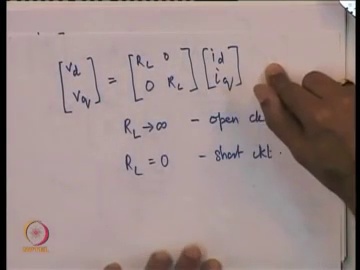 [v_d v_q] = [R_L 0 0 R_L] [i_d i_q]
R_L → ∞ - open ck
R_L = 0 - short ckt.